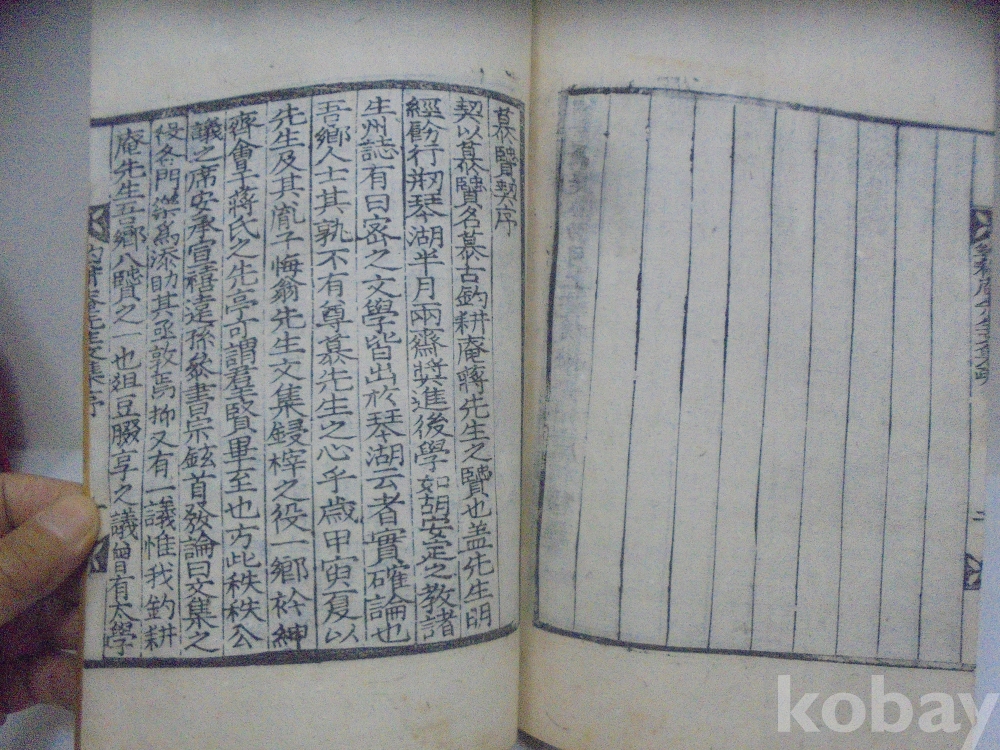 慕賢契序
契以慕賢名慕古釣耕庵蔣先生之賢也盖先生明
經飭行刱琴湖半月兩齋奬進後學如胡安定之教諸
生州誌有曰密之文學皆出於琴湖云者實確論也
吾鄕人士其孰不有尊慕先生之心乎歲甲寅夏以
先生及其胤子悔翁先生文集鋟榟之役一鄕衿紳
齊會于蔣氏之先亭可謂羣賢畢至也方此秩秩公
議之席安承宣禧遠孫參書宗鉉首發論曰文集之
役各門槩爲添助其亟敦焉抑又有一議惟我釣耕
庵先生吾鄕八賢之一也俎豆腏享之議曾有太學
釣耕庵先生文集序
kobay